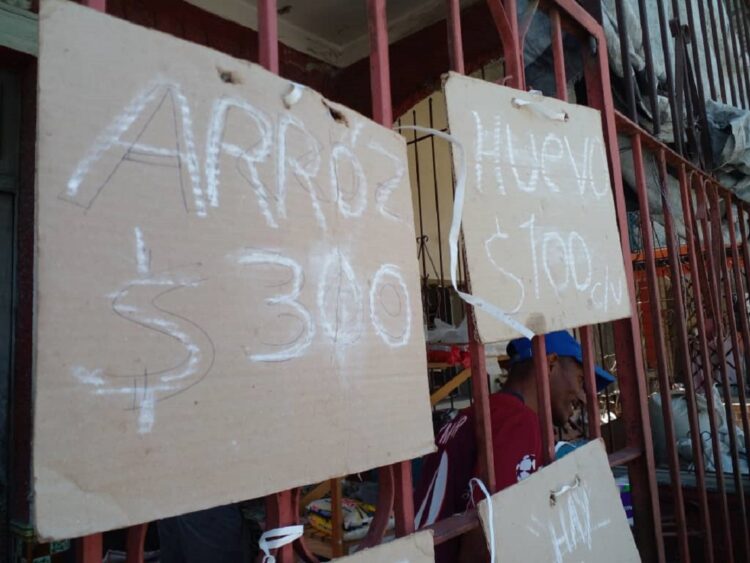 ARROZ
$ 300
HUEVO
$100 c/u
HAY